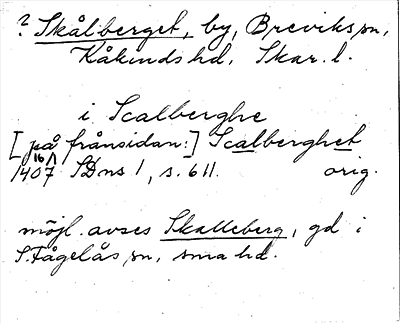 ? Skålberget, by, Breviks sn,
Kåkinds hd, Skar. l.
i Scalberghe
[på frånsidan:] Scalberghet
1407 16/1 SDns 1, s. 611. orig.
möjl. avses Skalleberg, gd i
S. Fågelås sn, sma hd.